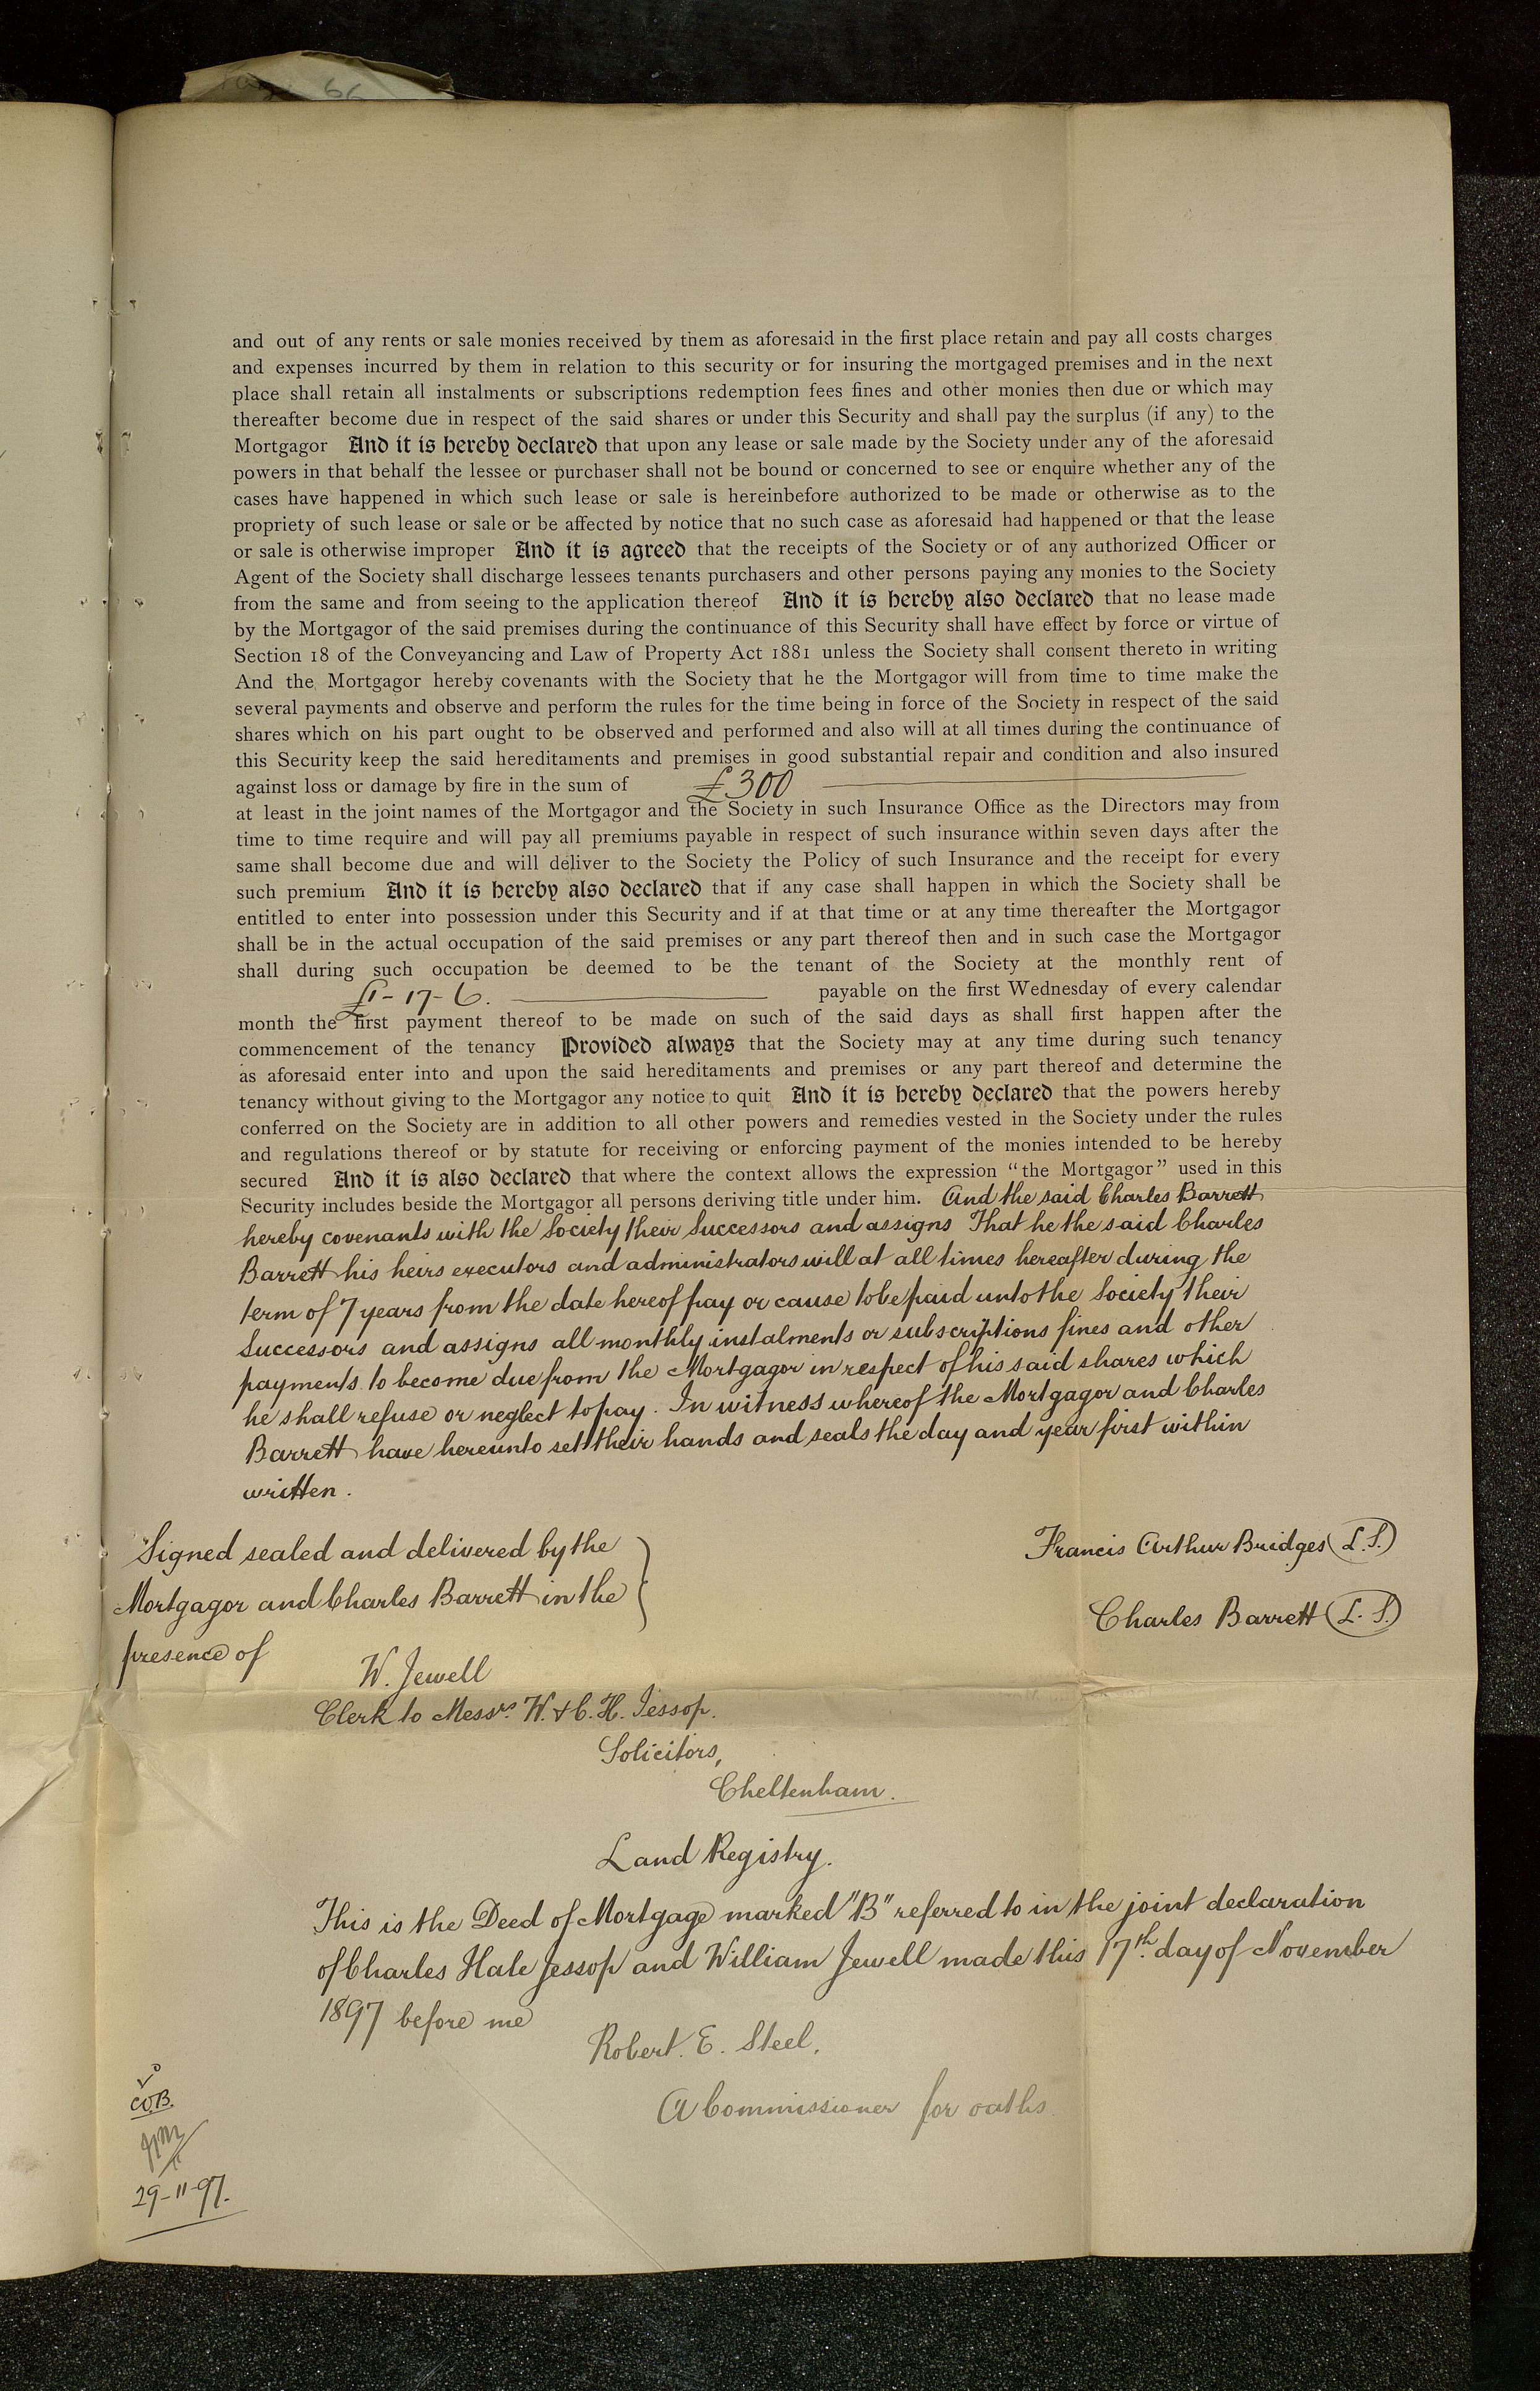 66
and out of any rents or sale monies received by them as aforesaid in the first place retain and pay all costs charges
and expenses incurred by them in relation to this security or for insuring the mortgaged premises and in the next
place shall retain all instalments or subscriptions redemption fees fines and other monies then due or which may
thereafter become due in respect of the said shares or under this Security and shall pay the surplus (if any) to the
Mortgagor And it is hereby declared that upon any lease or sale made by the Society under any of the aforesaid
powers in that behalf the lessee or purchaser shall not be bound or concerned to see or enquire whether any of the
cases have happened in which such lease or sale is hereinbefore authorized to be made or otherwise as to the
propriety of such lease or sale or be affected by notice that no such case as aforesaid had happened or that the lease
or sale is otherwise improper And it is agreed that the receipts of the Society or of any authorized Officer or
Agent of the Society shall discharge lessees tenants purchasers and other persons paying any monies to the Society
from the same and from seeing to the application thereof And it is hereby also declared that no lease made
by the Mortgagor of the said premises during the continuance of this Security shall have effect by force or virtue of
Section 18 of the Conveyancing and Law of Property Act 1881 unless the Society shall consent thereto in writing
And the Mortgagor hereby covenants with the Society that he the Mortgagor will from time to time make the
several payments and observe and perform the rules for the time being in force of the Society in respect of the said
shares which on his part ought to be observed and performed and also will at all times during the continuance of
this Security keep the said hereditaments and premises in good substantial repair and condition and also insured
against loss or damage by fire in the sum of £300
at least in the joint names of the Mortgagor and the Society in such Insurance Office as the Directors may from
time to time require and will pay all premiums payable in respect of such insurance within seven days after the
same shall become due and will deliver to the Society the Policy of such Insurance and the receipt for every
such premium And it is hereby also declared that if any case shall happen in which the Society shall be
entitled to enter into possession under this Security and if at that time or at any time thereafter the Mortgagor
shall be in the actual occupation of the said premises or any part thereof then and in such case the Mortgagor
shall during such occupation be deemed to be the tenant of the Society at the monthly rent of
£1-17-6. payable on the first Wednesday of every calendar
month the first payment thereof to be made on such of the said days as shall first happen after the
commencement of the tenancy Provided always that the Society may at any time during such tenancy
as aforesaid enter into and upon the said hereditaments and premises or any part thereof and determine the
tenancy without giving to the Mortgagor any notice to quit And it is hereby declared that the powers hereby
conferred on the Society are in addition to all other powers and remedies vested in the Society under the rules
and regulations thereof or by statute for receiving or enforcing payment of the monies intended to be hereby
secured And it is also declared that where the context allows the expression "the Mortgagor" used in this
Security includes beside the Mortgagor all persons deriving title under him. And the said Charles Barrett
hereby covenants with the Society their Successors and assigns That he the said Charles
Barrett his heirs executors and administrators will at all times hereafter during the
term of 7 years from the date hereof pay or cause to be paid unto the Society their
Successors and assigns all monthly instalments or subscriptions fines and other
payments to become due from the Mortgagor in respect of his said shares which
he shall refuse or neglect to pay. In witness whereof the Mortgagor and Charles
Barrett have hereunto set their hands and seals the day and year first within
written.
Signed sealed and delivered by the
Mortgagor and Charles Barrett in the
presence of
Francis Arthur Bridges (L.S.)
Charles Barrett (L.S.)
W. Jewell
Clerk to Messrs. W. & C. H. Jessop.
Solicitors,
Cheltenham.
Land Registry.
This is the Deed of Mortgage marked "B" referred to in the joint declaration
of Charles Hale Jessop and William Jewell made this 17th. day of November
1897 before me
Robert. E. Steel.
A Commissioner for oaths
29-11-97.